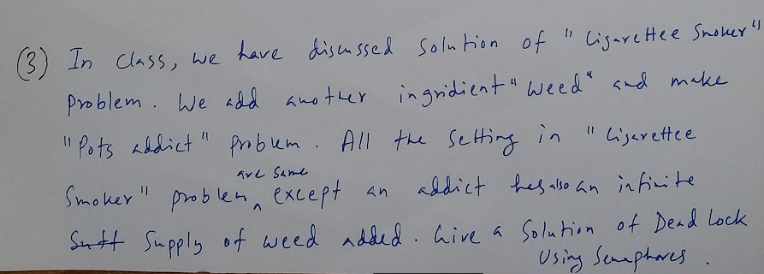 (3) In class, we have discussed solution of "Cigarettee Smoker"
problem. We add another ingridient "weed" and make
"Pots addict" problem. All the setting in "Cigarettee
Smoker" problem are same except an addict has also an infinite
supply of weed added. Give a solution of Dead lock
Using Semaphores.